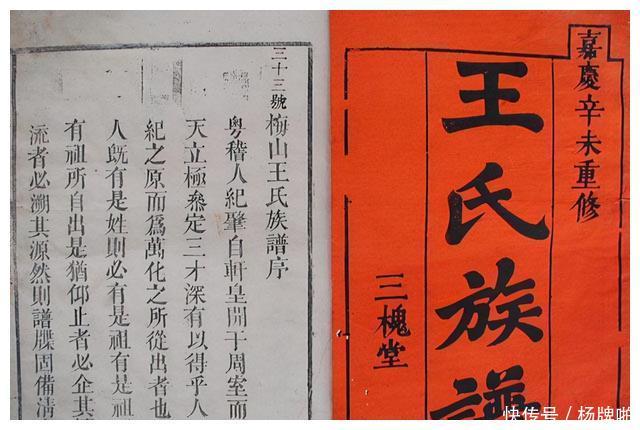 嘉慶辛未重修
王氏族譜
三槐堂
三十三號
梅山王氏族譜序
粵稽人紀肇自軒皇開于周室而
天立極叅定三才深有以得乎人
紀之原而爲萬化之所從出者也
人旣有是姓則必有是祖有是祖
有祖所自出是猶仰止者必企其
流者必溯其源然則譜牒固備淸
快传号 / 杨牌啪